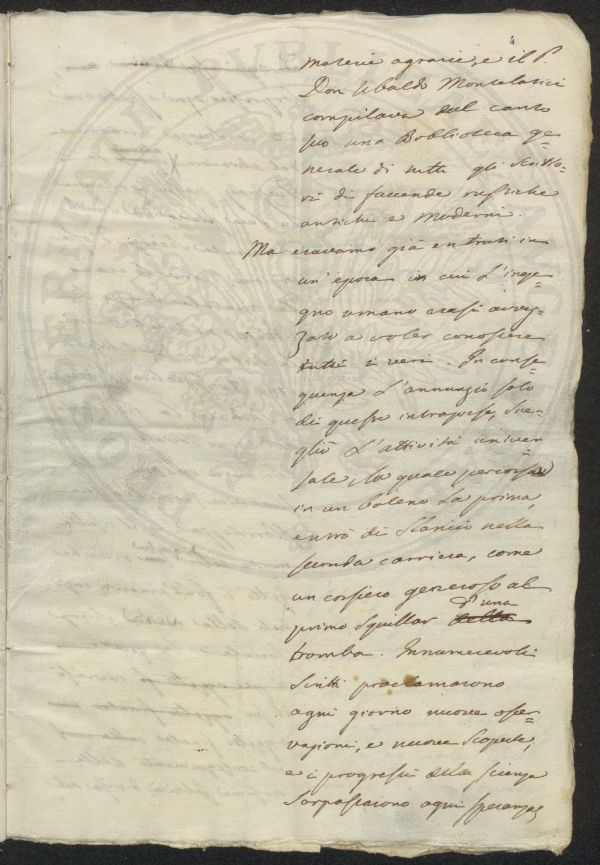 materie agrarie, e il P.
Don Ubaldo Montelatici
compilava dal canto
suo una Biblioteca ge-
nerale di tutti gli scritto-
ri di faccende rustiche
antichi e moderni.
Ma eravamo già entrati in
un'epoca in cui l'inge-
gno umano erasi avvez-
zato a voler conoscere
tutti i veri. In conse-
quenza l'annunzio solo
di queste intraprese, sve-
gliò l'attività univer
sale, la quale percorsa
in un baleno la prima,
entrò di slancio nella
seconda carriera, come
un corsiero generoso al
primo squillar d'una
tromba. Innumerevoli
scritti proclamarono
ogni giorno nuove osser-
vazioni, e nuove scoperte,
e i progressi della scienza
sorpassarono ogni speranza